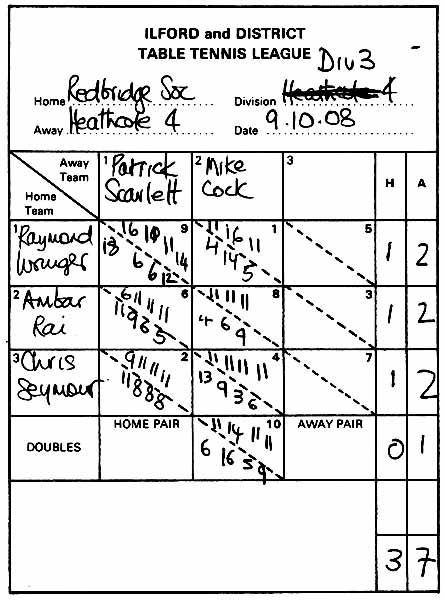 ILFORD and DISTRICT
TABLE TENNIS LEAGUE
Div 3
Home Redbridge Soc Division 4
Away Heathcote 4 Date 9.10.08
Away Team 1 Patrick Scarlett 2 Mike Cock 3 H A
Home Team
1 Raymond 16 11 14 9 11 16 11 1 5 1 2
18 6 6 12 4 14 5
2 Ambar Rai 6 11 11 11 6 11 11 11 8 3 1 2
11 9 6 5 4 6 9
3 Chris Seymour 9 11 11 11 2 11 11 11 11 4 7 1 2
11 8 8 8 13 9 3 6
DOUBLES HOME PAIR 11 14 11 11 10 AWAY PAIR 0 1
6 16 5 9
3 7